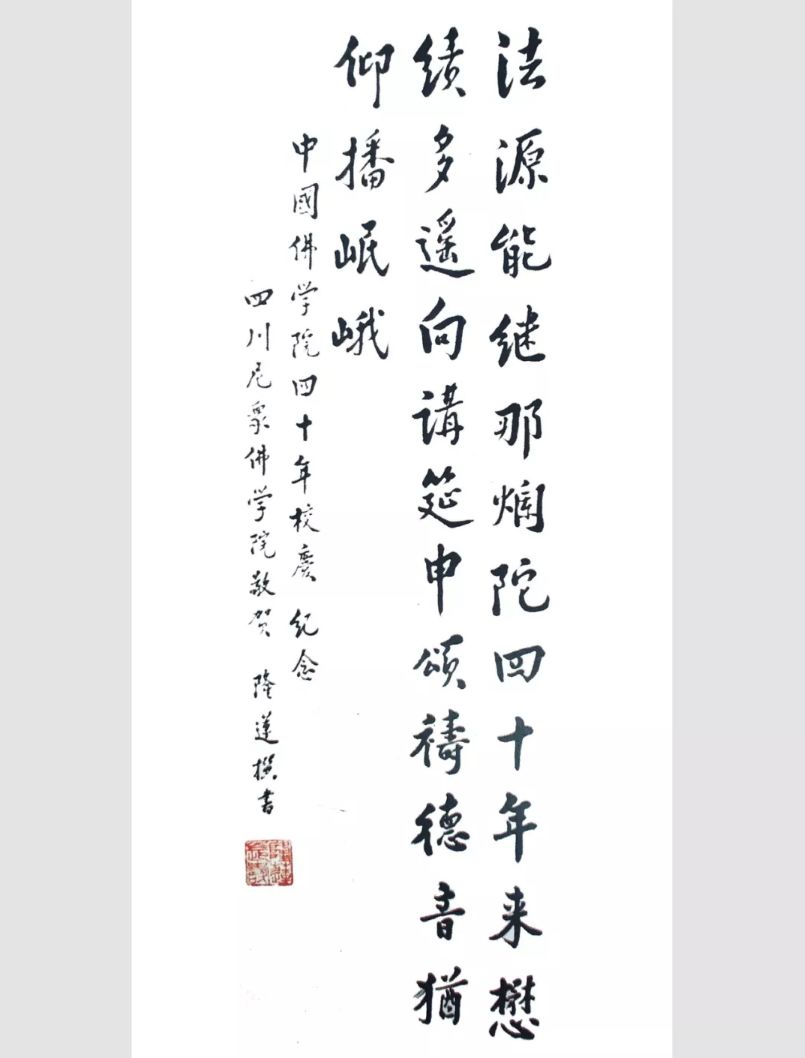 法源能继那烂陀四十年来懋
绩多遥向講筵申頌禱德音猶
仰播岷峨
中國佛学院四十年校慶纪念
四川尼衆佛学院敬贺 隆莲撰书